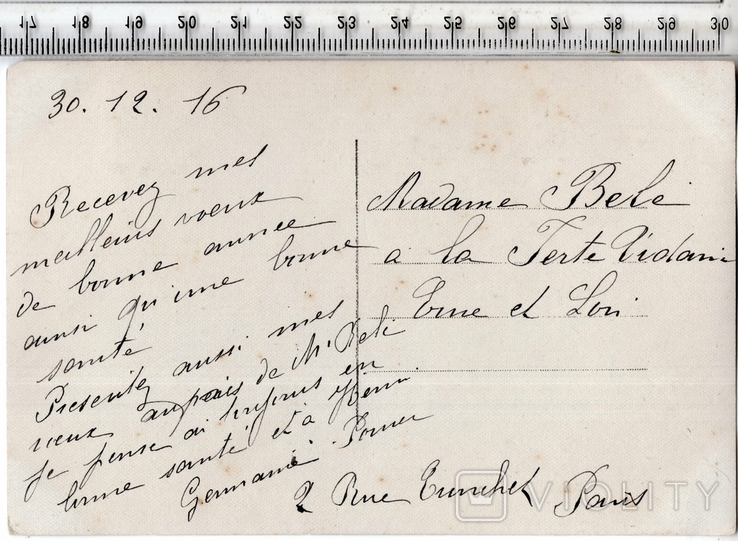 17 18 19 20 21 22 23 24 25 26 27 28 29 30
30. 12. 16
Recevez mes
meilleurs voeux
de bonne année
ainsi qu'une bonne
santé
Presentez aussi mes
voeux auprais de Mr Bele
je pense ai toujours en
bonne santé et a
Germaine
2 Rue Paris
Madame Bele
a la Ferte Vidame
Eure et Loir
VIOLITY